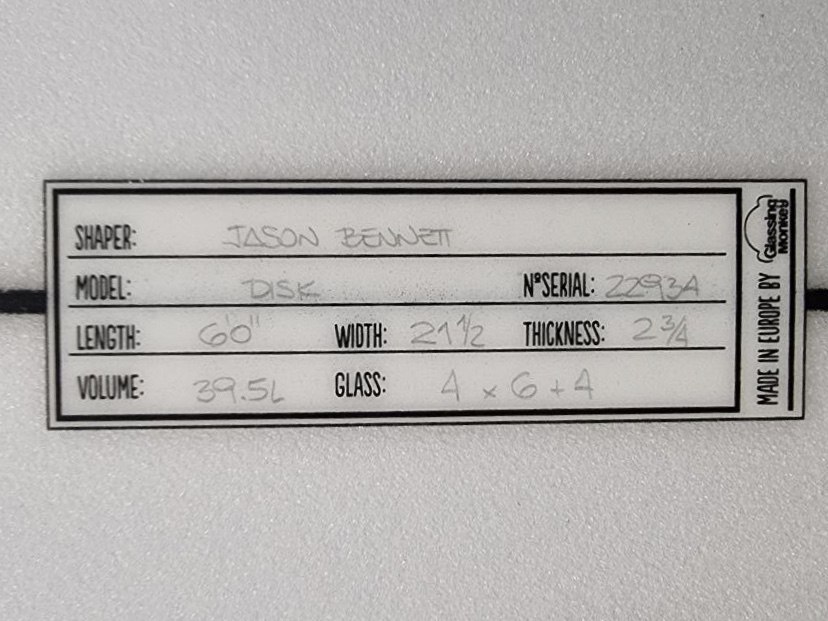 SHAPER: JASON BENNETT
MODEL: DISK N°SERIAL: 22934
LENGTH: 6'0" WIDTH: 21 1/2 THICKNESS: 2 3/4
VOLUME: 39.5L GLASS: 4 x 6 + 4
MADE IN EUROPE BY Glassing Monkey